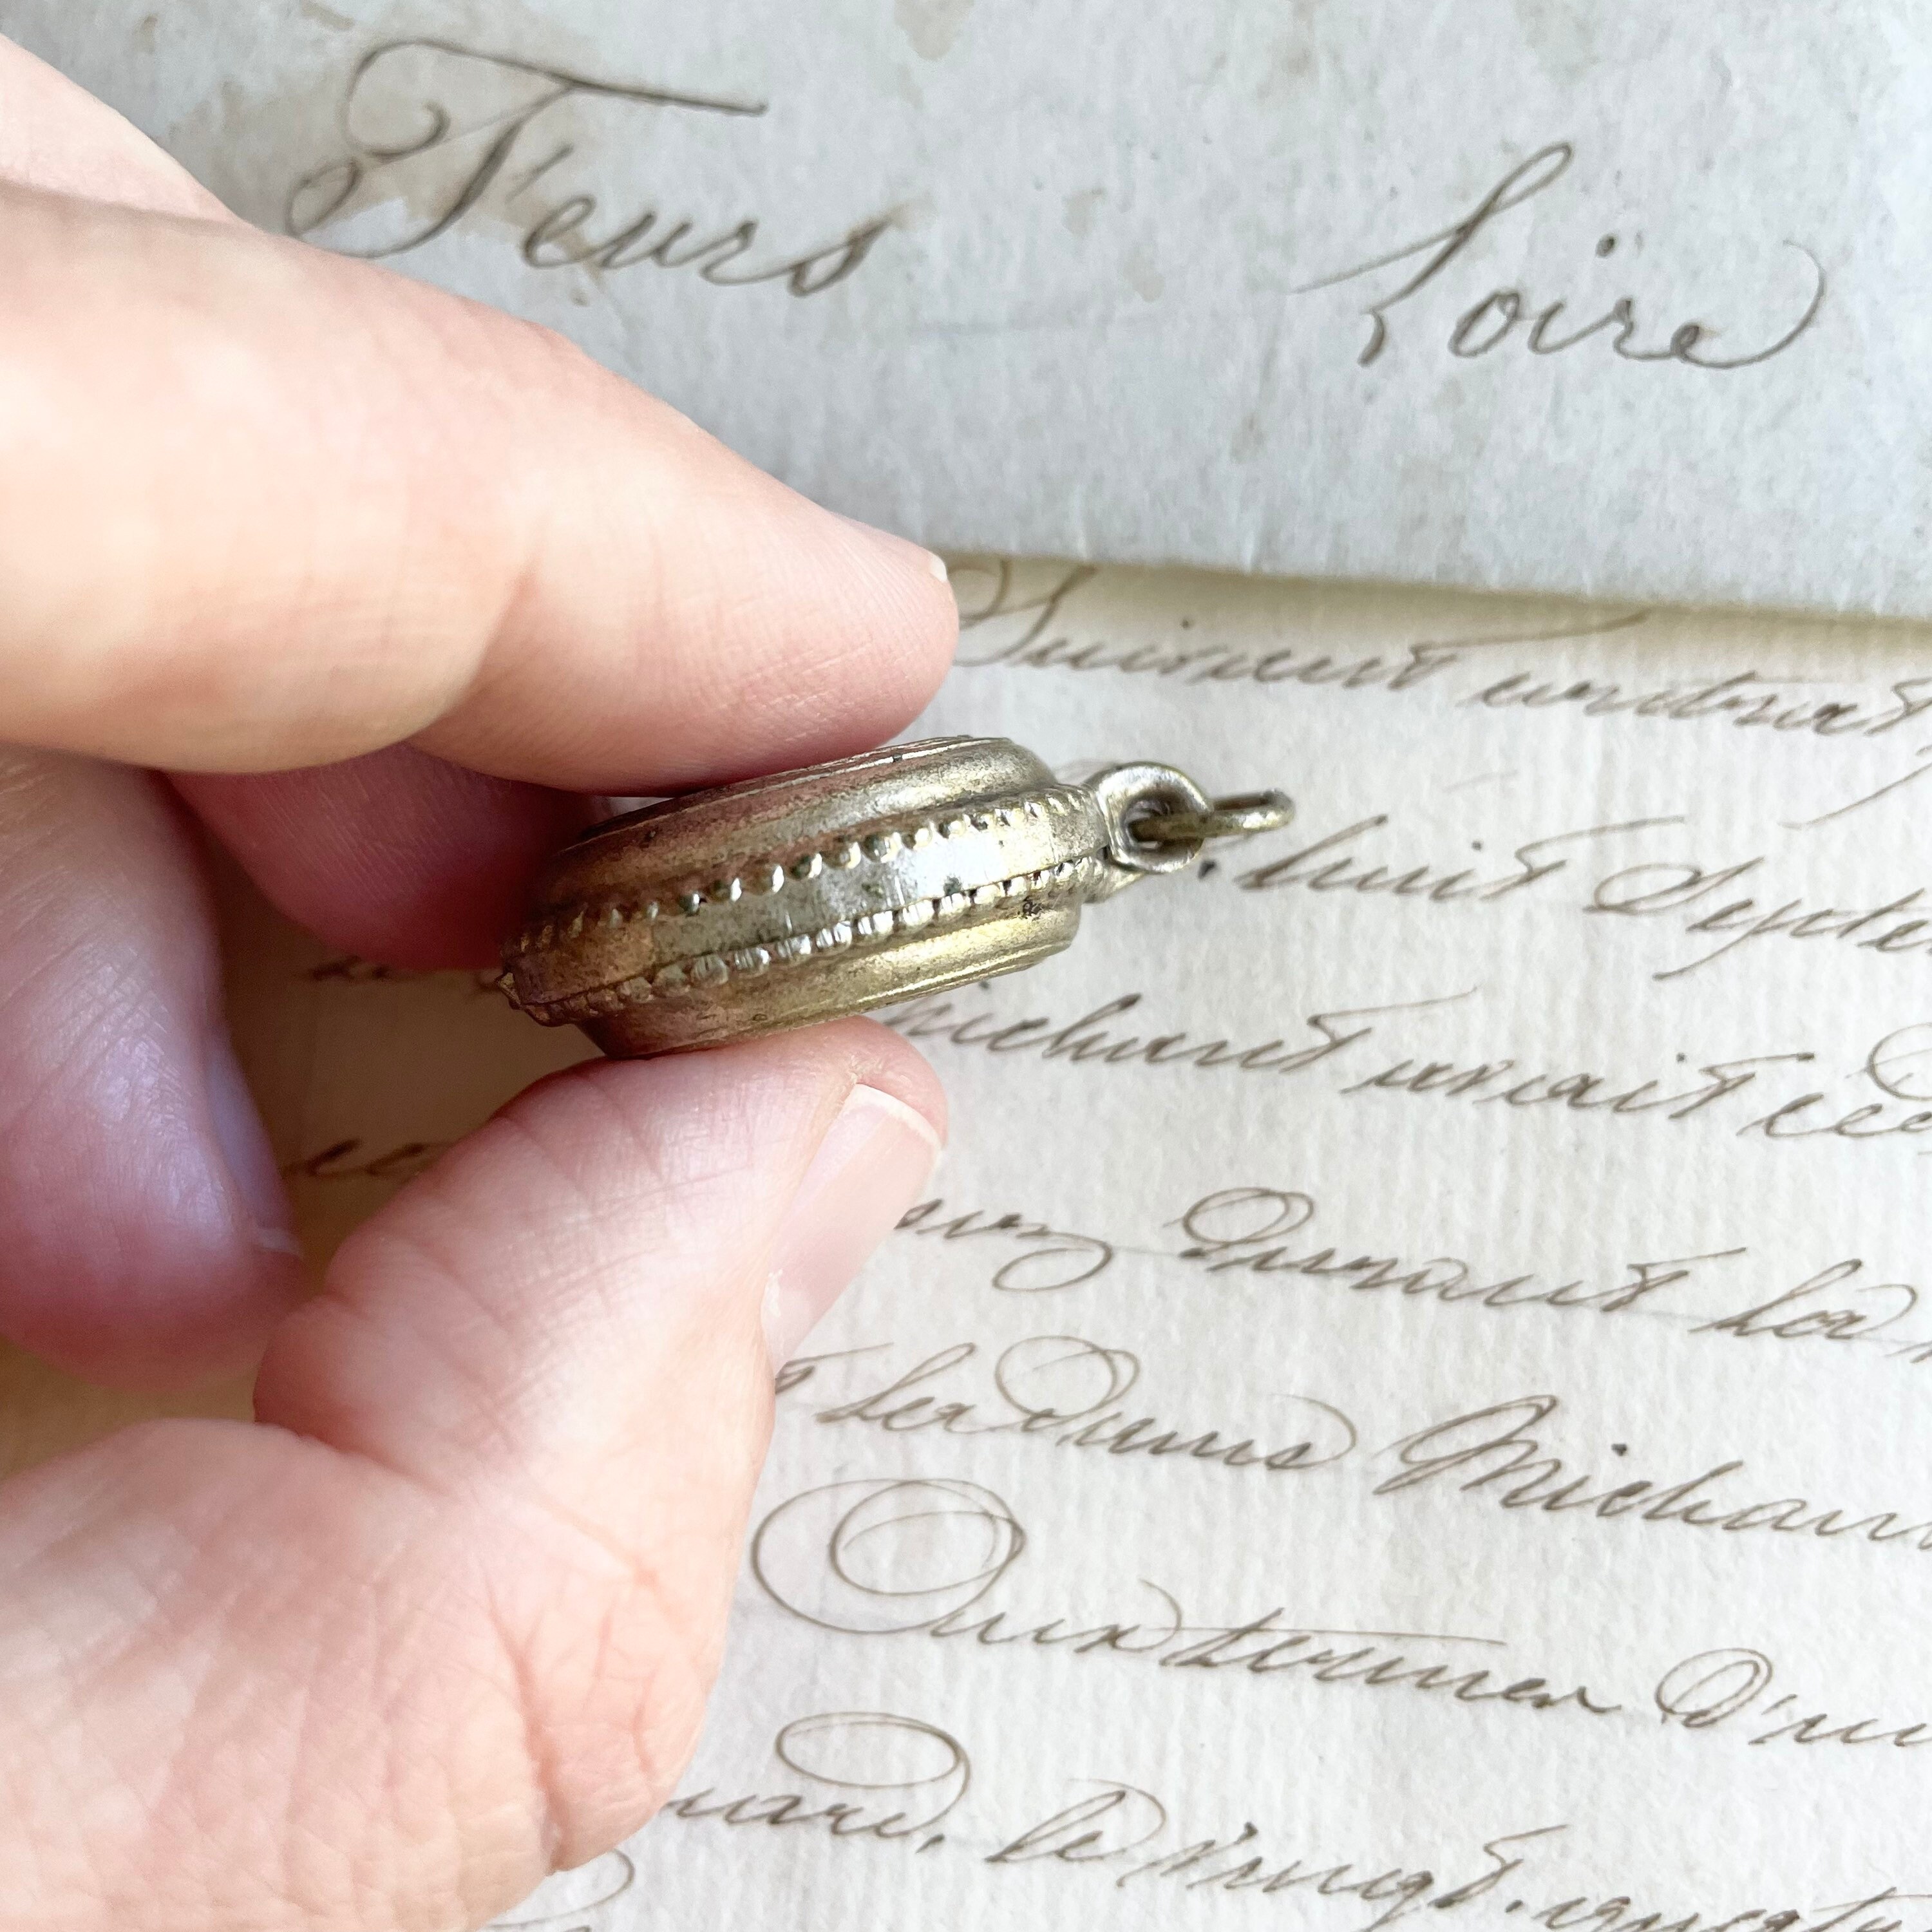 Feurs Loire
Suivant contrat
huit Septe
Michaud avait ce
durant la
la dame Michau
Aux termes d'un
le vingt.quatr